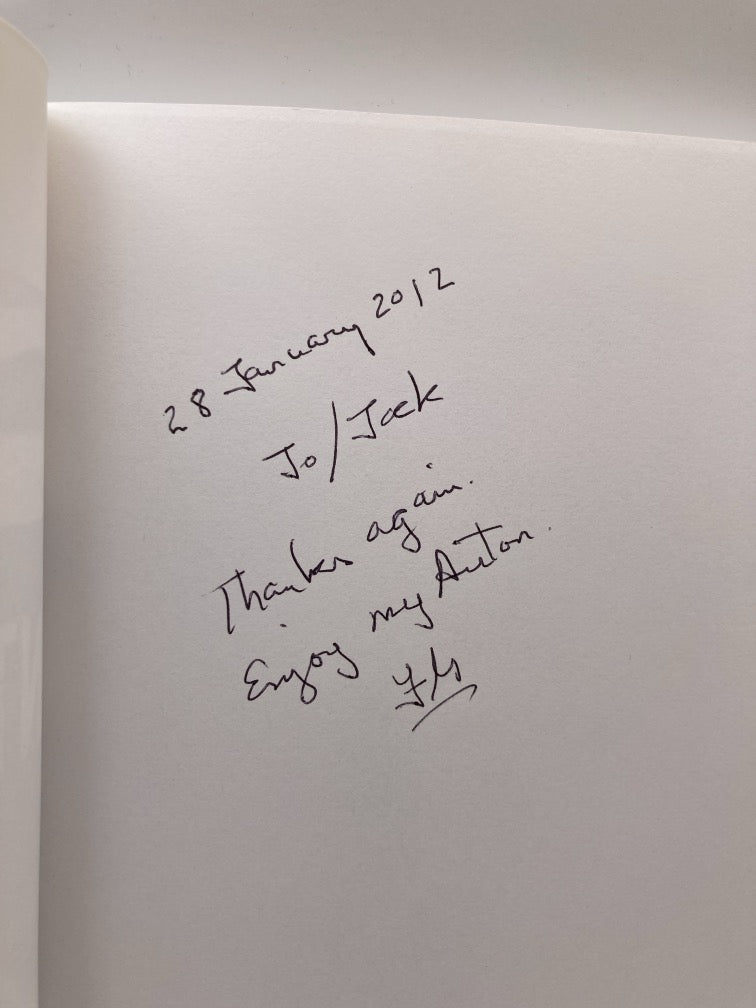 28 January 2012
Jo/Jack
Thanks again.
Enjoy my Anton.